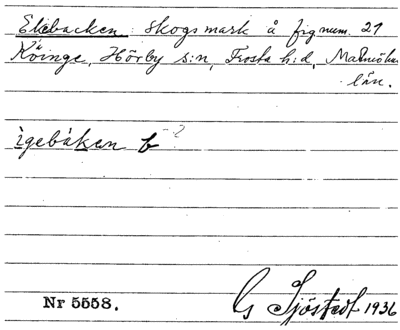 Ekebacken: skogsmark å fig num. 21
Köinge, Hörby s:n, Frosta h:d, Malmöhus
län.
ìgebàken b ?
Nr 5558.
Gs Sjöstedt 1936